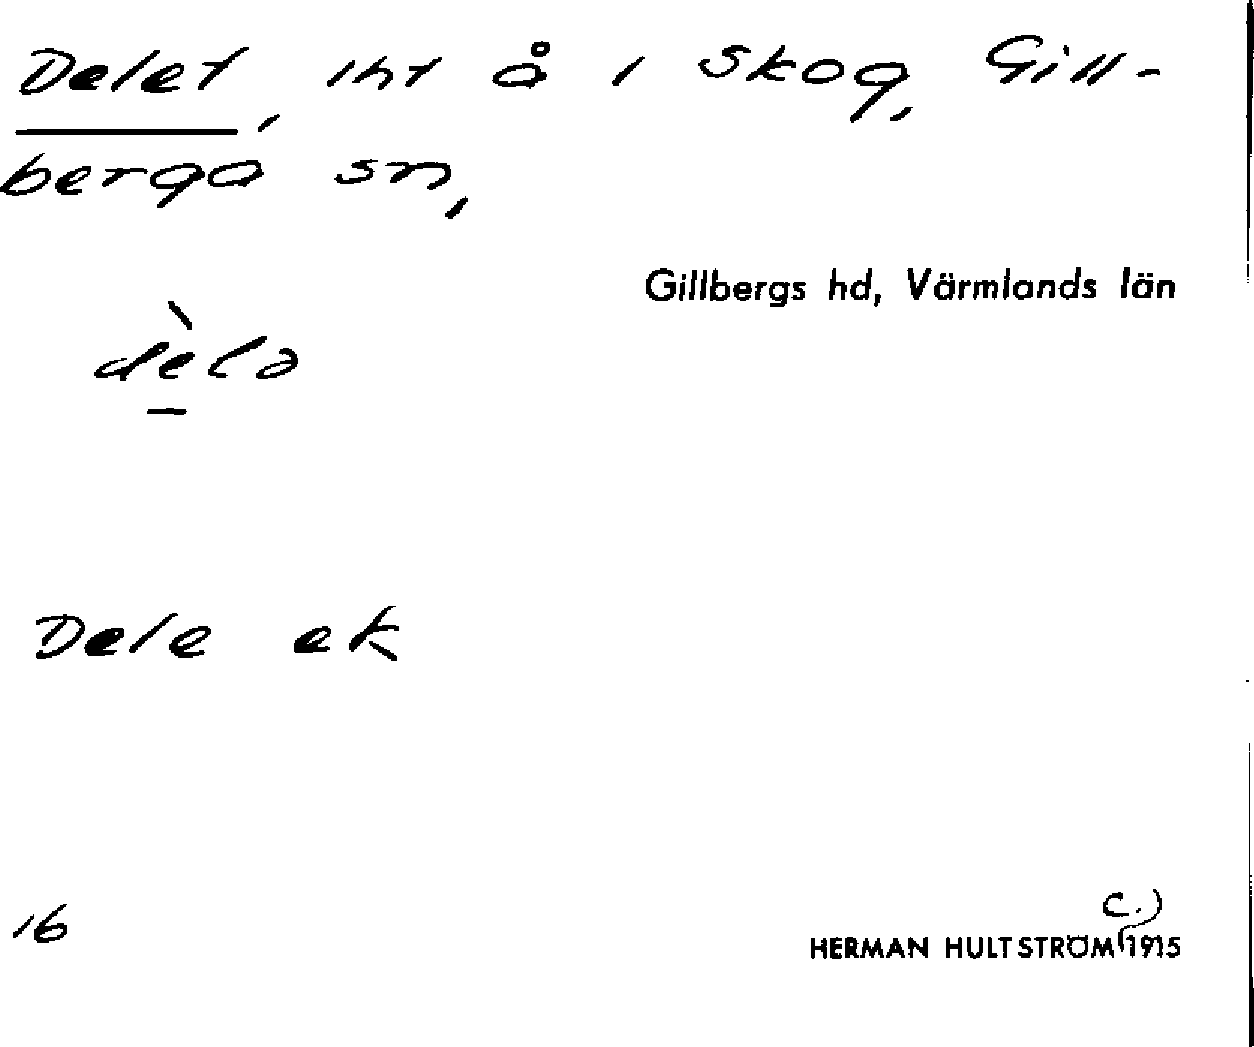 Delet, iht å i Skog, Gill-
berga sn,
Gillbergs hd, Värmlands län
dèlə
Dele ek
16
c.)
HERMAN HULTSTRÖM 1915